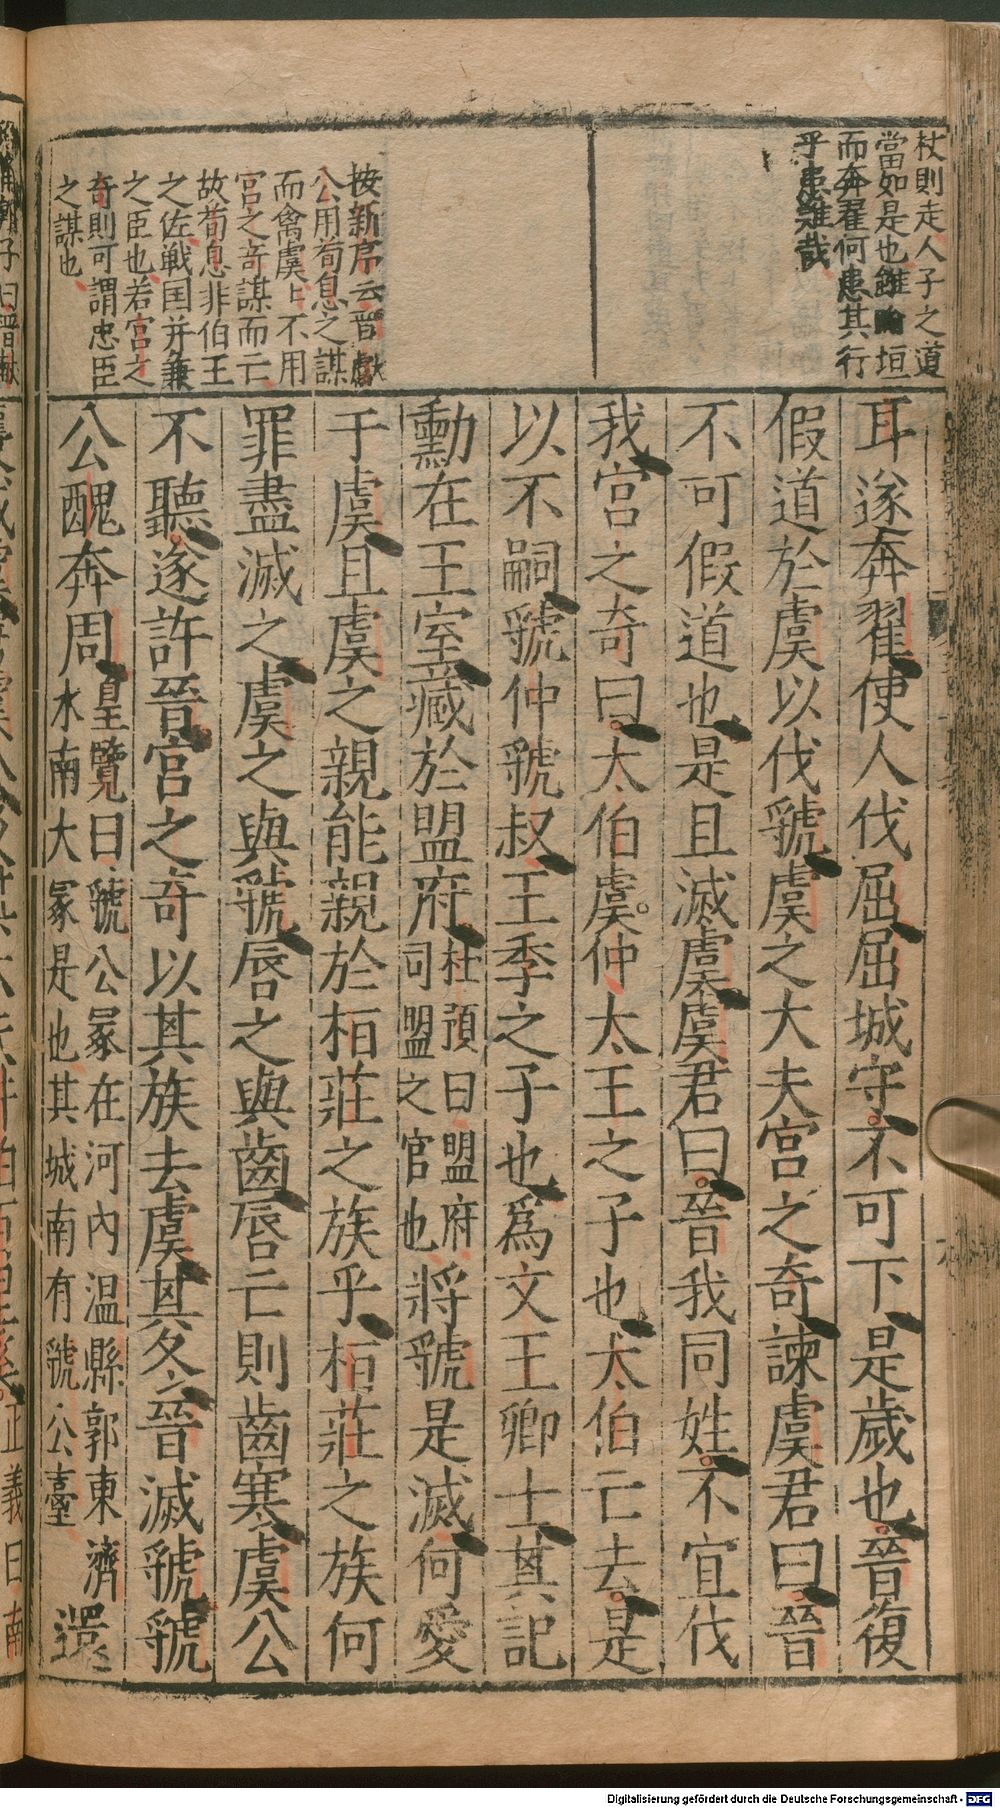 杖則走人子之道
當如是也雖踰垣
而奔翟何患其行
乎患難哉
按新序云晉獻
公用荀息之謀
而禽虞虞不用
宮之奇謀而亡
故荀息非伯王
之佐戦囯并兼
之臣也若宮之
奇則可謂忠臣
之謀也
耳遂奔翟使人伐屈屈城守不可下是歲也晉復
假道於虞以伐虢虞之大夫宮之奇諫虞君曰晉
不可假道也是且滅虞虞君曰晉我同姓不宜伐
我宮之奇曰太伯虞仲太王之子也太伯亡去是
以不嗣虢仲虢叔王季之子也爲文王卿士其記
勳在王室藏於盟府杜預曰盟府司盟之官也將虢是滅何愛
于虞且虞之親能親於桓莊之族乎桓莊之族何
罪盡滅之虞之與虢唇之與齒唇亡則齒寒虞公
不聽遂許晉宮之奇以其族去虞其冬晉滅虢虢
公醜奔周皇覽曰虢公冢在河內溫縣郭東濟水南大冢是也其城南有虢公臺還
Digitalisierung gefördert durch die Deutsche Forschungsgemeinschaft - DFG